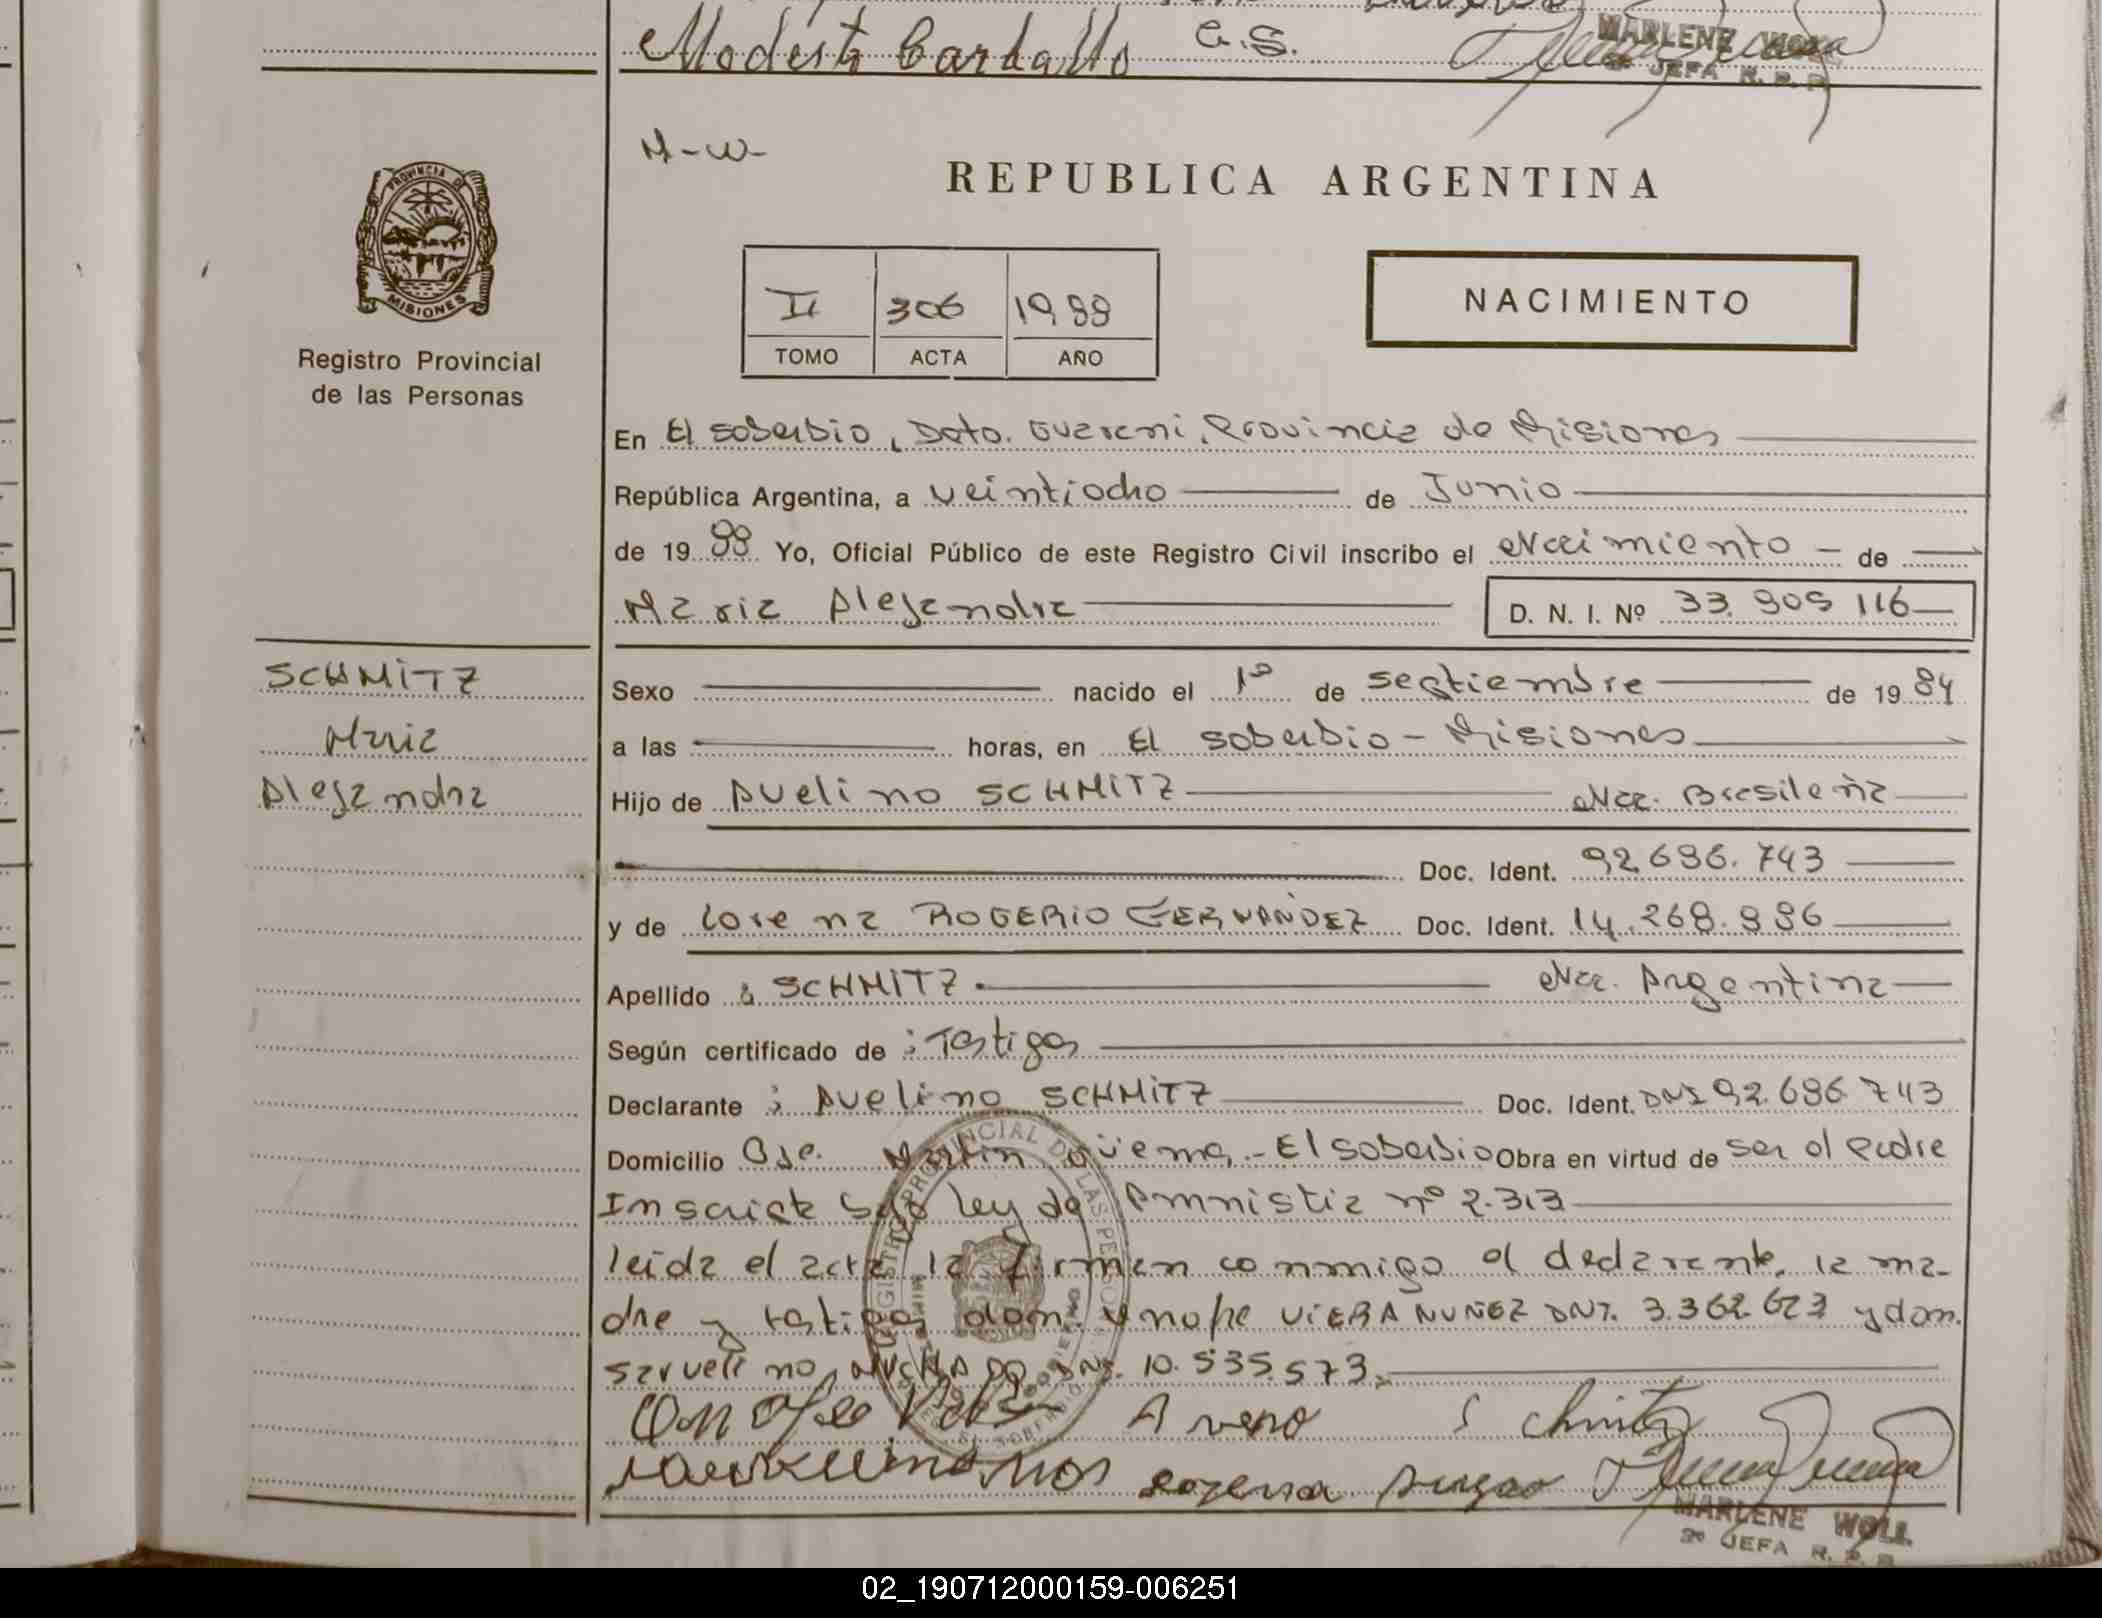 Modesto Carballo G.S.
MARLENE WOLL
2º JEFA R. P. P.
M-W-
REPUBLICA ARGENTINA
PROVINCIA DE
MISIONES
Registro Provincial
de las Personas
II 306 1988
TOMO ACTA AÑO
NACIMIENTO
En El Soberbio, Dpto. Guarani, Provincia de Misiones
República Argentina, a veintiocho de Junio
de 19 88 Yo, Oficial Público de este Registro Civil inscribo el Nacimiento de
Maria Alejandra D. N. I. Nº 33.909 116
SCHMITZ
Maria
Alejandra
Sexo nacido el 1º de septiembre de 19 84
a las horas, en El Soberbio - Misiones
Hijo de Avelino SCHMITZ Nac. Brasileña
Doc. Ident. 92.686.743
y de Lorena ROGERIO FERNANDEZ Doc. Ident. 14.268.996
Apellido : SCHMITZ. Nac. Argentina
Según certificado de : Testigos
Declarante : Avelino SCHMITZ Doc. Ident. DNI 92.686 743
Domicilio Martin Güemes - El Soberbio Obra en virtud de ser el Padre
Inscripta bajo Ley de Amnistia nº 2.313
leida el acta la firman conmigo el declarante, la ma-
dre y testigos dom. Onofre VIERA NUÑEZ DNI. 3.362.623 y dom.
Sarvelino MACHADO DNI. 10.535.573.
Schmitz
MARLENE WOLL
2º JEFA R. P. P.
02_190712000159-006251